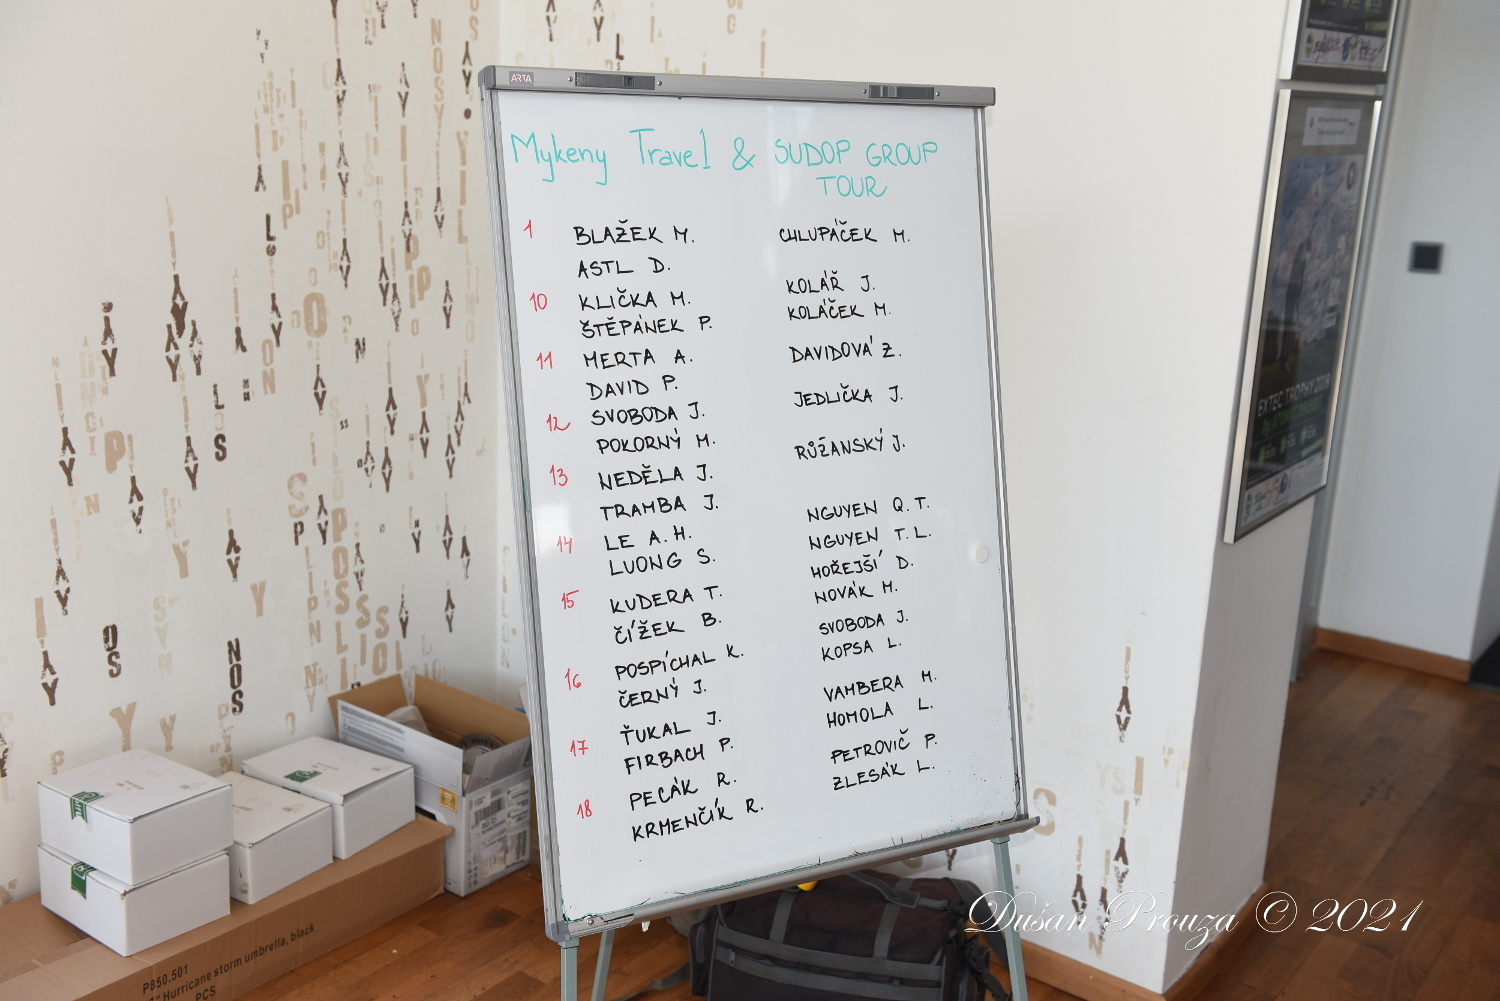 ARTA
Mykeny Travel & SUDOP GROUP
TOUR
1 BLAŽEK M. CHLUPÁČEK M.
ASTL D.
10 KLIČKA M. KOLÁŘ J.
ŠTĚPÁNEK P. KOLÁČEK M.
11 MERTA A. DAVIDOVÁ Z.
DAVID P.
12 SVOBODA J. JEDLIČKA J.
POKORNÝ M.
13 NEDĚLA J. RŮŽANSKÝ J.
TRAMBA J.
14 LE A.H. NGUYEN Q.T.
LUONG S. NGUYEN T.L.
15 KUDERA T. HOŘEJŠÍ D.
ČÍŽEK B. NOVÁK M.
16 POSPÍCHAL K. SVOBODA J.
ČERNÝ J. KOPSA L.
17 ŤUKAL J. VAMBERA M.
FIRBACH P. HOMOLA L.
18 PECÁK R. PETROVIČ P.
KRMENČÍK R. ZLESÁK L.
EXTEC TROPHY 2019
P850.501
Hurricane storm umbrella, black
PCS
Dušan Prouza © 2021